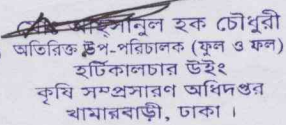 আহ্সানুল হক চৌধুরী
অতিরিক্ত উপ-পরিচালক (ফুল ও ফল)
হর্টিকালচার উইং
কৃষি সম্প্রসারণ অধিদপ্তর
খামারবাড়ী, ঢাকা ।